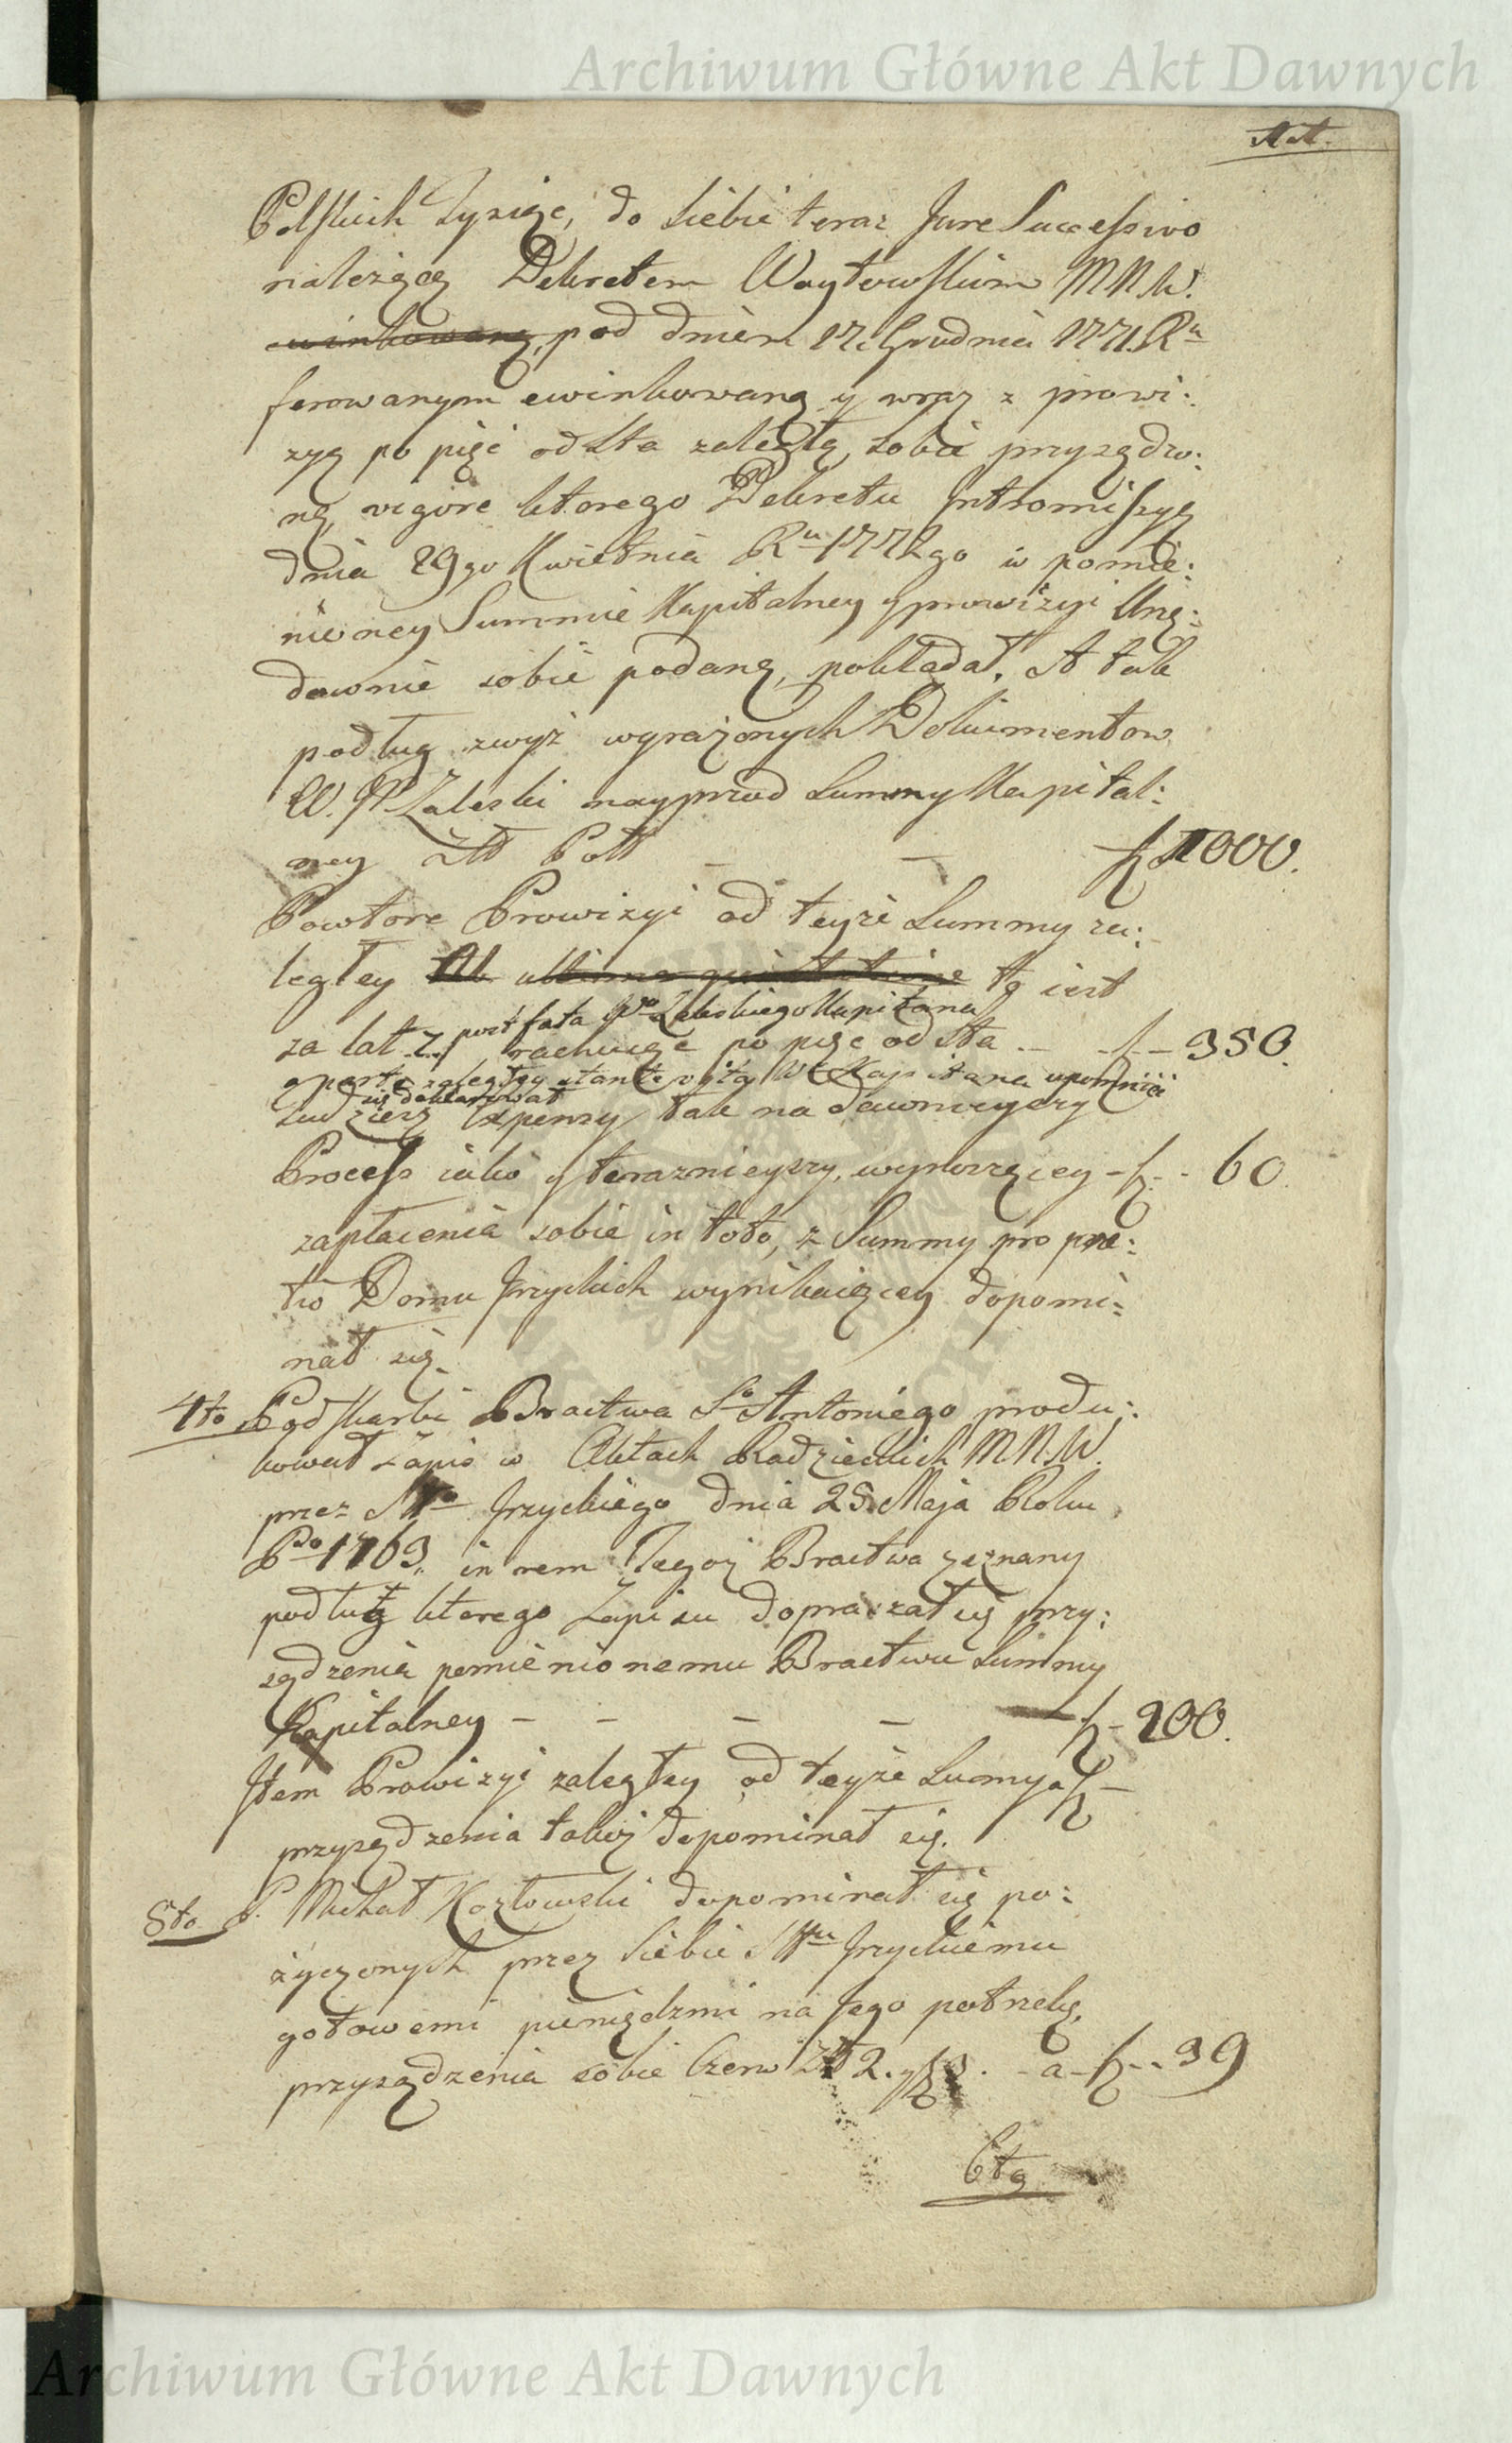 Archiwum Główne Akt Dawnych
Polskich Tysiąc, do siebie teraz Jure Successivo
należącą Dekretem Woytowskim M N W.
ewinkowaną, pod dniem 17. Grudnia 1771. Ru
ferowanym ewinkowaną y wraz z prowi:
zyą po pięć od sta zaległą, sobie przysądzo:
ną, vigore ktorego Dekretu Intromissyą
dnia 29go Kwietnia Ru 1772go w pomie:
nioney Summie Kapitalney y prowizyi Urzę:
downie sobie podaną, pokładał. A tak
podług zwyż wyrażonych Dokumentow
W. JP. Zaleski nayprzod Summy Kapital:
ney Złł Poll — — f 1000.
Powtore Prowizyi od teyże Summy za:
ległey Ab ultima quietatione to iest
post fata Zaleskiego Kapitana
za lat 7. rachuiąc po pięć od sta — f — 350.
o zaległą Kapitana upomnieć
się deklarował
tudzież Expensy tak na dawnieyszy
Process iako y teraznieyszy, wynoszącey - f - 60.
zapłacenia sobie in toto, z Summy pro pre:
tio Domu Jrzyckich wynikaiącey dopomi:
nał się.
4to Podskarbi Bractwa S. Antoniego produ:
kował Zapis w Aktach Radzieckich M. N. W.
przez Jrzyckiego dnia 25. Maja Roku
Po 1763. in rem Tegoż Bractwa zeznany
podług ktorego Zapisu dopraszał się przy:
sądzenia pomienionemu Bractwu Summy
Kapitalney — — — — f - 200.
Item Prowizyi zaległey od teyże Summy a f —
przysądzenia takoż dopominał się.
5to P. Michał Kozłowski dopominał się po:
życzonych przez siebie Jrzyckiemu
gotowemi pieniędzmi na Jego potrzebę,
przysądzenia sobie Czerw Zł 2. y f 3. - a - f - 39
6to
Archiwum Główne Akt Dawnych